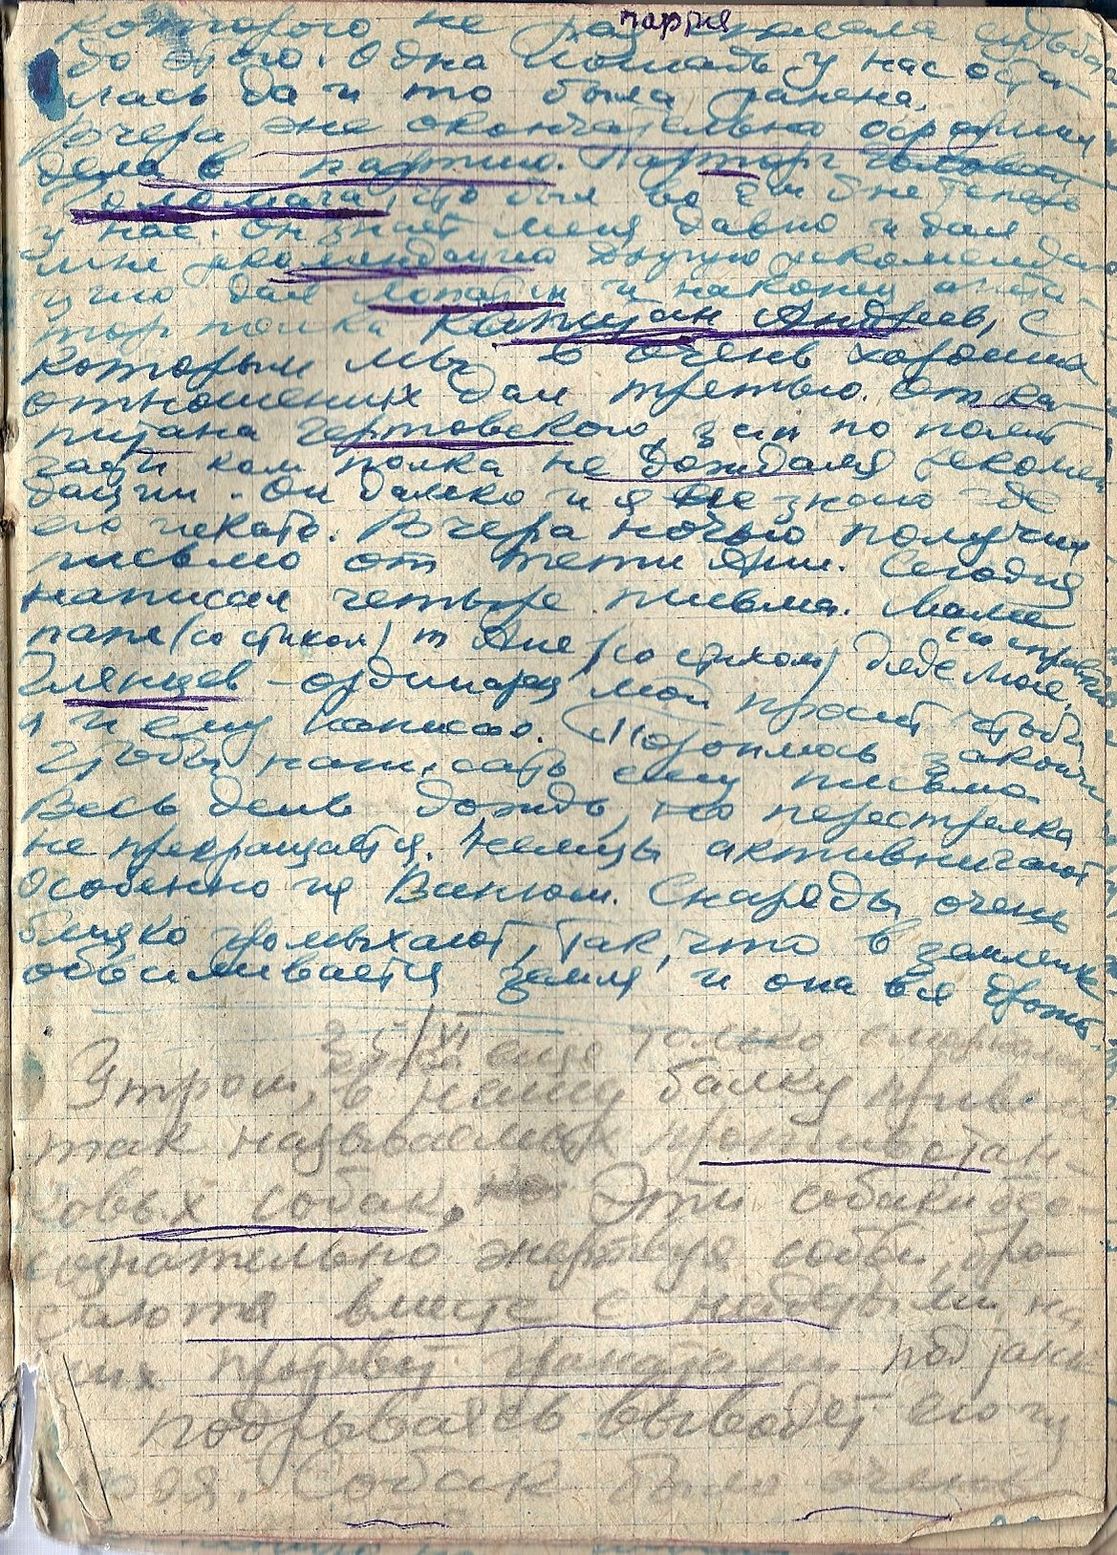 партия
которого не
до этого. Одна лошадь у нас оста-
лась да и то была ранена.
Вчера же окончательно оформил
дела в партию. Парторг
что был во 2-м б-не теперь
у нас. Он знает меня давно и дал
мне рекомендацию. Другую рекоменда-
цию дал Лопатин и наконец агита-
тор полка Капитан Андреев, с
которым мы в очень хороших
отношениях дал третью. От ка-
питана Чертовского, зам по полит
части ком полка не дождался рекомен
дации. Он далеко и я не знаю где
его искать. Вчера ночью получил
письмо от тети Ани. Сегодня
написал четыре письма. Маме
папе (со стихом) т Ане (со стихом) дяде Мише
со справкой
Глянцев - ординарец мой просит чтобы
я и ему написал. Тороплюсь закончить
чтобы написать ему письмо.
Весь день дождь, но перестрелка
не прекращается. Немцы активничают
особенно из Ванюш. Снаряды очень
близко громыхают, так, что в землянке
обсыпывается земля и она вся дрожит.
25/VI
еще только
Утром, в нашу балку привели
так называемых противотан-
ковых собак. Эти собаки бес-
сознательно жертвуя собой, бро-
саются вместе с надетыми на
них против гранатами под танк
подрываясь выводят его из
строя. Собак было очень